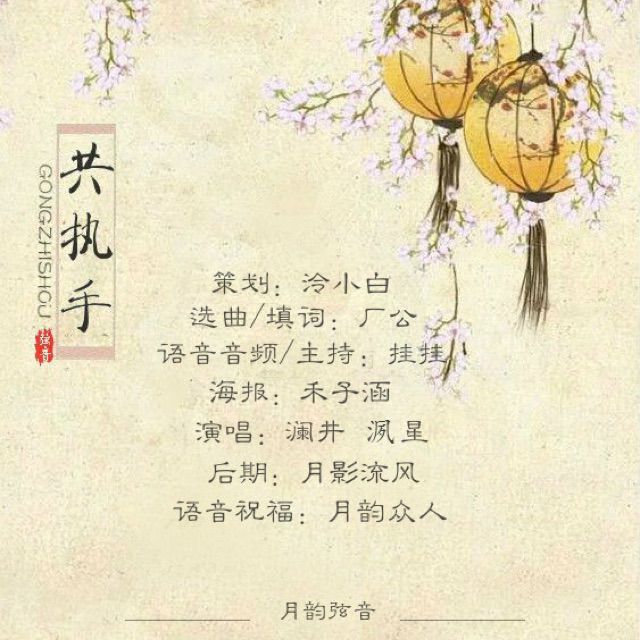 共执手
GONGZHISHOU
弦音
策划：泠小白
选曲/填词：厂公
语音音频/主持：挂挂
海报：禾子涵
演唱：澜井 夙星
后期：月影流风
语音祝福：月韵众人
月韵弦音